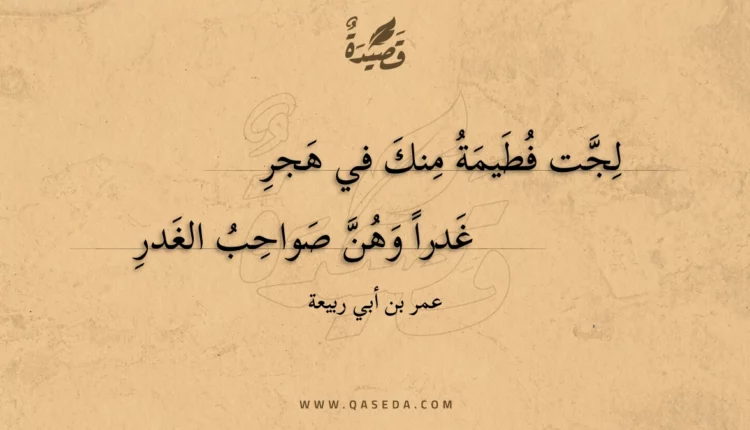 قَصِيْدَةٌ
لِجَّت فُطَيمَةُ مِنكَ في هَجرِ
غَدراً وَهُنَّ صَواحِبُ الغَدرِ
عمر بن أبي ربيعة
WWW.QASEDA.COM